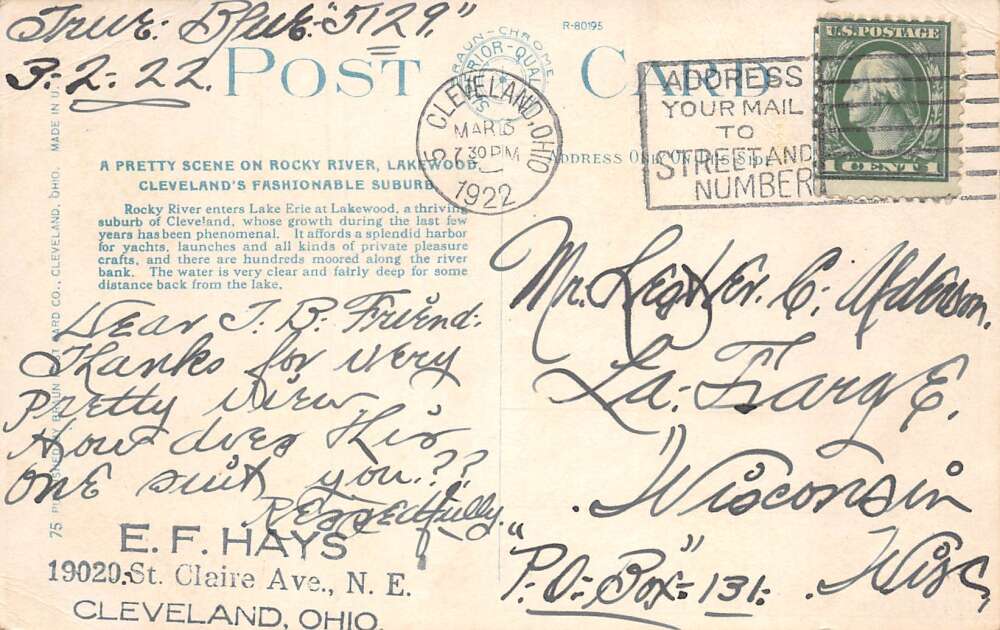 True: Blue: "5129."
3-2-22.
R-80195
POST CARD
CLEVELAND, OHIO
MAR 3
7 30 PM
1922
ADDRESS
YOUR MAIL
TO
STREET AND
NUMBER
U.S. POSTAGE
1 CENT 1
A PRETTY SCENE ON ROCKY RIVER, LAKEWOOD,
CLEVELAND'S FASHIONABLE SUBURB
Rocky River enters Lake Erie at Lakewood, a thriving
suburb of Cleveland, whose growth during the last few
years has been phenomenal. It affords a splendid harbor
for yachts, launches and all kinds of private pleasure
crafts, and there are hundreds moored along the river
bank. The water is very clear and fairly deep for some
distance back from the lake.
ADDRESS ONLY ON THIS SIDE
Dear T. B. Friend:
Thanks for very
pretty view
How does this
one suit you.??
Respectfully.
E. F. HAYS
19020 St. Claire Ave., N. E.
CLEVELAND, OHIO.
Mr. Lester. C.
La: FargE.
Wisconsin
"P.O. Box" 131. Wisc
75 PUBLISHED BY BRAUN POST CARD CO., CLEVELAND, OHIO. MADE IN U.